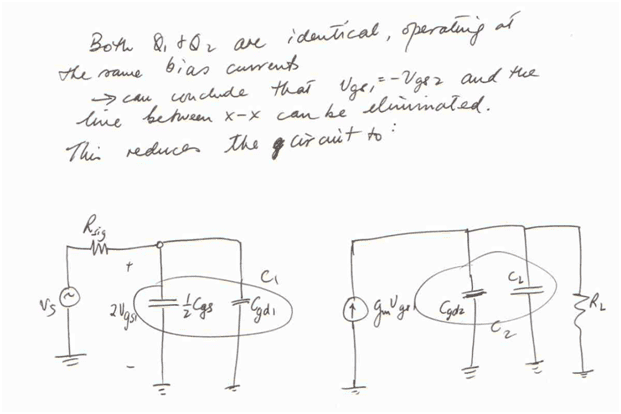 Both Q1 & Q2 are identical, operating at
the same bias currents
→ can conclude that Vgs1 = -Vgs2 and the
line between x-x can be eliminated.
This reduces the circuit to:
Rsig
+
Vs
2Vgs1
-
½Cgs
Cgd1
C1
gmVgs1
Cgd2
CL
C2
RL